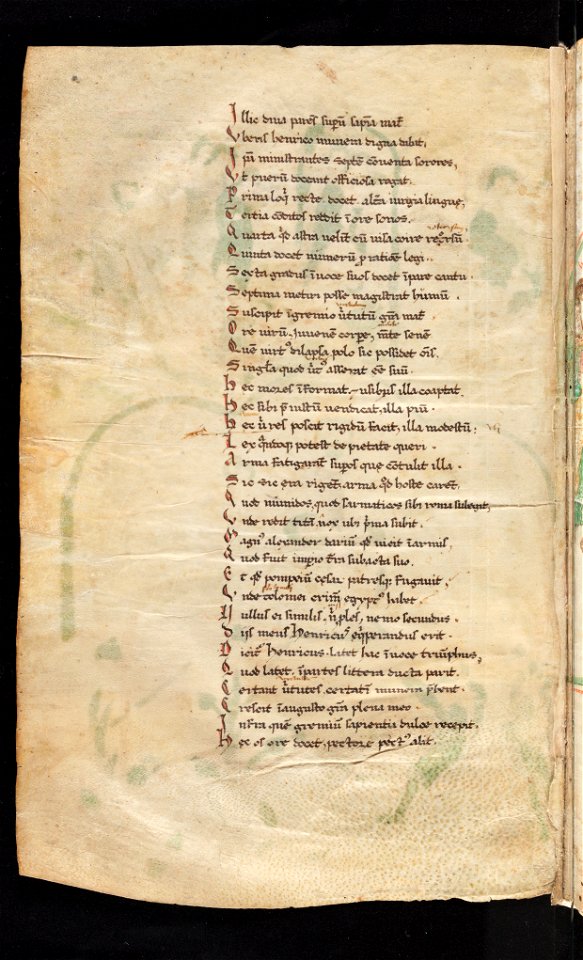 Illic diua parēs superū sapīa mat̄
Vberis henrico munera digna dabit,
Ipī ministrantes septē cōuenta sorores,
Vt puerū doceant officiosa rogat.
Prima loq̇ recte docet. alt̄a iurgia lingue,
Tertia cōditos reddit ī ore sonos.
Quarta q̊d astra uelīt cū uisa coire reorsū
Quinta docet numerū p ratiōe legi.
Sexta gradus ī uoce suos docet īpare cantu.
Septima metiri posse magistrat humū.
Suscipit ī gremio uirtutū gn̄a mat̄
Ore uirū. iuuenē corpe, mēte senē
Quē uirt' dilapsa polo sic possidet ōīs.
Singl̄a quod uirt' asserat eē suū.
Hec mores īformat. usibus illa coaptat.
Hec sibi p iustū uendicat, illa piū.
Hec ut res poscit rigidū facit, illa modestū;
Lex q̄cūq̄ potest de pietate queri.
Arma fatigarūt superos que cōtulit illa.
Sic sic era rigēt. arma q̊d hoste carēt.
Quod numidos, quod sarmaticos sibi roma subegit,
Vnde redit titā, uox ubi prima subit.
Magn' alexander dariū q̊d uicit ī armis,
Quod fuit īmpio t̄ra subacta suo.
Et q̊d pompeiū cesar patresq; fugauit,
Vnde tolomei crimē egypt' habet.
Nullus ei similis. nullus ples, nemo secundus.
Diis meus henricus equiperandus erit.
Dicit' henricus. latet hac ī uoce triumphus,
Quod latet. ī partes littera ducta parit.
Certant uirtutes. certatī munera p̄bent.
Crescit ī augusto gr̄a plena meo.
Inf̄ra quē gremiū sapientia dulce recepit.
Hec os ore docet, pectore pect' alit.